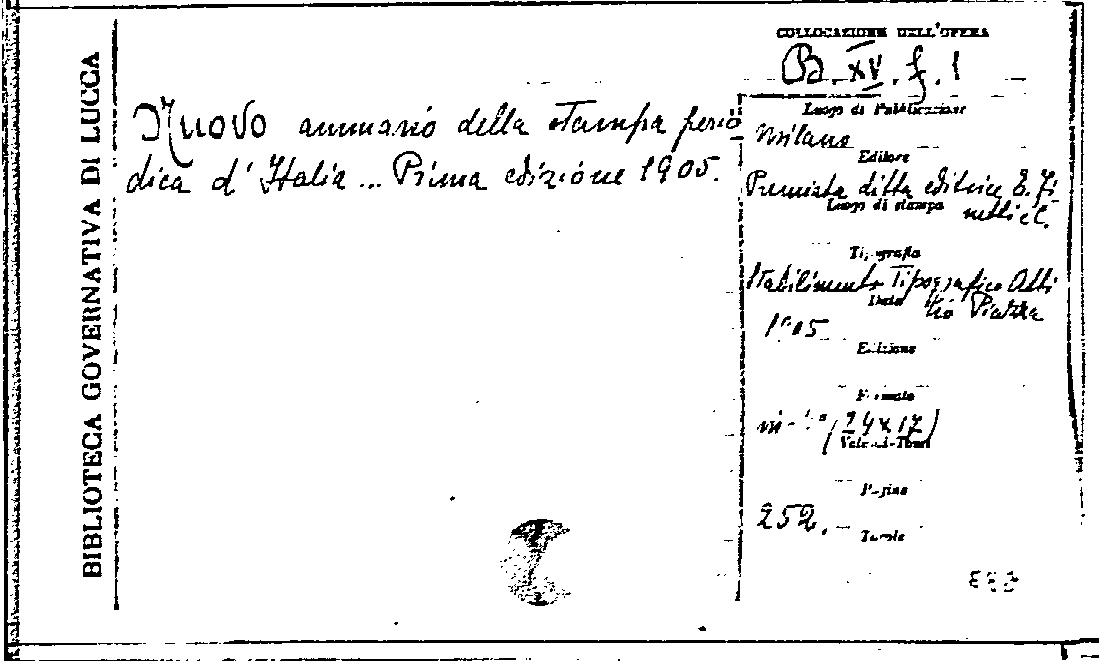 BIBLIOTECA GOVERNATIVA DI LUCCA
Nuovo annuario della stampa perio-
dica d'Italia... Prima edizione 1905.
COLLOCAZIONE DELL'OPERA
B. XV. f. 1
Luogo di Pubblicazione
Milano
Editore
Premiata ditta editrice E. Fi
netti el.
Luogo di stampa
Tipografia
Stabilimento Tipografico Atti
lio Piazza
Data
1905
Edizione
Formato
in- (24x17)
Volumi-Tomi
Pagine
252.
Tavole